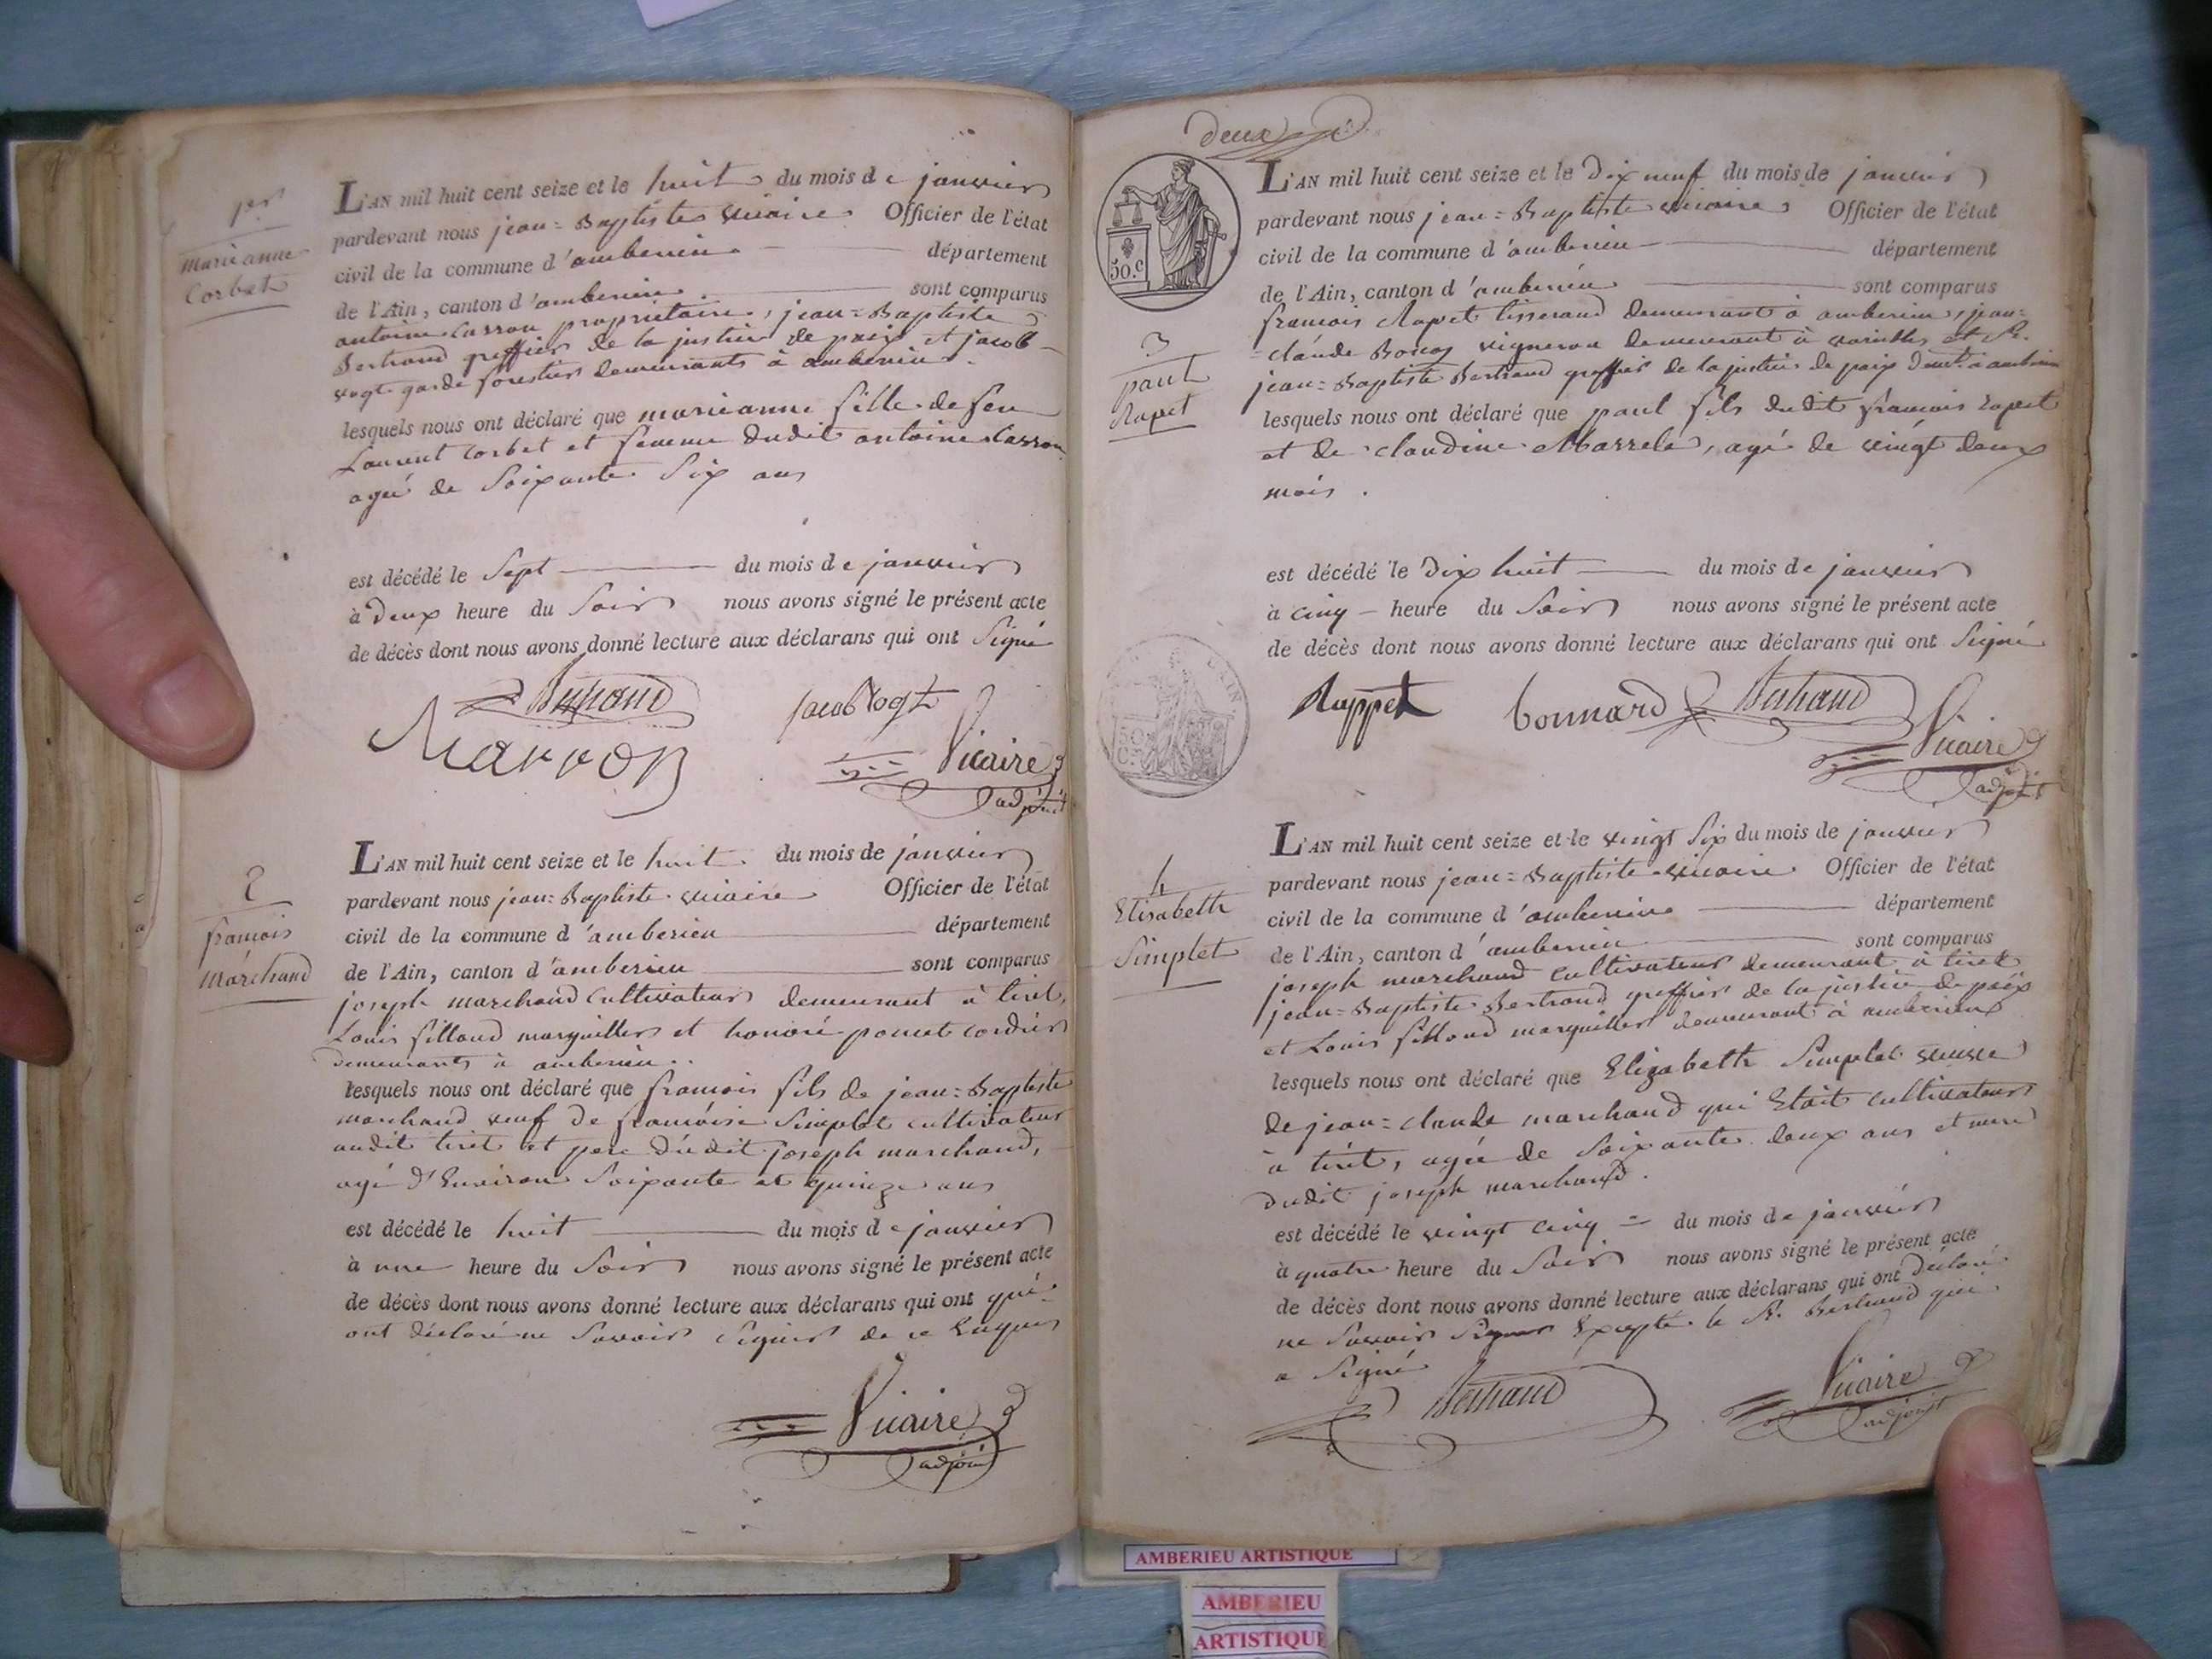 1er
marieanne
Corbet
L'AN mil huit cent seize et le huit du mois de janvier
pardevant nous jean=Baptiste vicaire Officier de l'état
civil de la commune d'amberieu département
de l'Ain, canton d'amberieu sont comparus
antoine proprietaire, jean=Baptiste
Bertrand greffier de la justice de paix et jacob
vogt garde forestier demeurants à amberieu
lesquels nous ont déclaré que marieanne fille de feu
Laurent Corbet et femme dudit antoine
agée de Soixante Six ans
est décédé le Sept du mois de janvier
à Deux heure du Soir nous avons signé le présent acte
de décès dont nous avons donné lecture aux déclarans qui ont Signé
Bertrand
jacob Vogt
Vicaire
adjoint
2
francois
Marchand
L'AN mil huit cent seize et le huit du mois de janvier
pardevant nous jean=Baptiste vicaire Officier de l'état
civil de la commune d'amberieu département
de l'Ain, canton d'amberieu sont comparus
joseph marchand Cultivateur demeurant à tiret,
Louis filloud marguillier et honoré poncet cordier
demeurants à amberieu
lesquels nous ont déclaré que francois fils de jean=Baptiste
marchand veuf de francoise Simplet cultivateur
audit tiret et pere dudit joseph marchand,
agé d'Environ Soixante et quinze ans
est décédé le huit du mois de janvier
à une heure du Soir nous avons signé le présent acte
de décès dont nous avons donné lecture aux déclarans qui ont qui
ont déclaré ne Savoir Signer de ce Enquis
Vicaire
adjoint
deux
50.c
3
paul
Rapet
L'AN mil huit cent seize et le Dix neuf du mois de janvier
pardevant nous jean=Baptiste vicaire Officier de l'état
civil de la commune d'amberieu département
de l'Ain, canton d'amberieu sont comparus
francois Rapet tisserand demeurant à amberieu, jean=
=claude vigneron demeurant à et Sr.
jean=Baptiste Bertrand greffier de la justice de paix demt. à amberieu
lesquels nous ont déclaré que paul fils dudit francois Rapet
et de claudine, agé de vingt deux
mois.
est décédé le Dix huit du mois de janvier
à cinq heure du Soir nous avons signé le présent acte
de décès dont nous avons donné lecture aux déclarans qui ont Signé
Rappet
bonnard
Bertrand
Vicaire
adjoint
4
Elisabeth
Simplet
L'AN mil huit cent seize et le vingt Six du mois de janvier
pardevant nous jean=Baptiste vicaire Officier de l'état
civil de la commune d'amberieu département
de l'Ain, canton d'amberieu sont comparus
joseph marchand Cultivateur demeurant à tiret
jean=Baptiste Bertrand greffier de la justice de paix
et Louis filloud marguillier demeurant à amberieux
lesquels nous ont déclaré que Elizabeth Simplet veuve
de jean=claude marchand qui Etait cultivateur
à tirét, agée de Soixante deux ans et mere
dudit joseph marchand.
est décédé le vingt cinq du mois de janvier
à quatre heure du Soir nous avons signé le présent acte
de décès dont nous avons donné lecture aux déclarans qui ont déclaré
ne Savoir Signer Excepté le Sr. Bertrand qui
a Signé
Bertrand
Vicaire
adjoint
AMBERIEU ARTISTIQUE
AMBERIEU
ARTISTIQUE